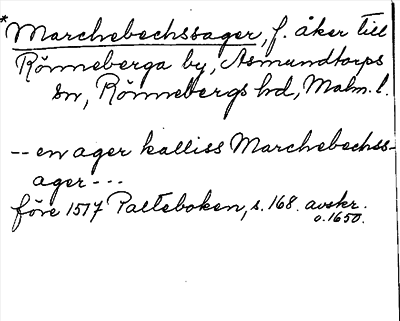 *Marchebechssager, f. åker till
Rönneberga by, Asmundtorps
sn, Rönnebergs hd, Malm. l.
-- en ager kalliss Marchebechss-
ager ---
före 1517 Palteboken, s. 168. avskr.
o. 1650.